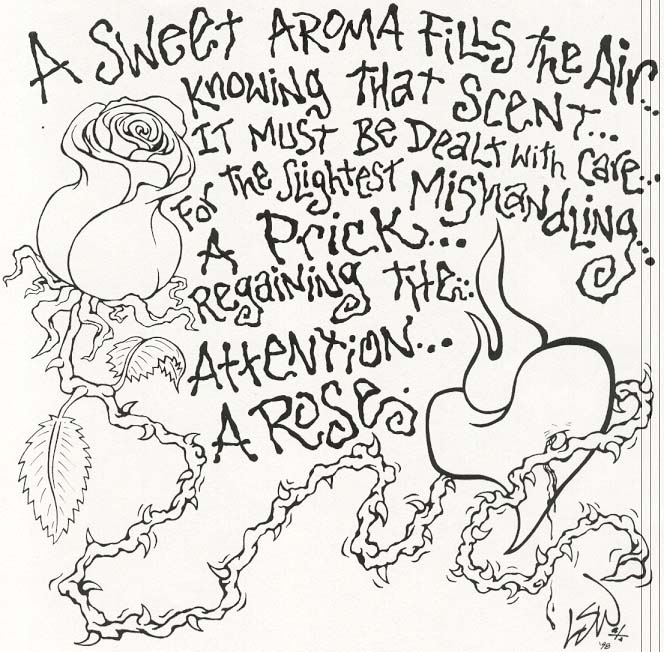 A SWEET AROMA FILLS THE AIR...
KNOWING THAT SCENT...
IT MUST BE DEALT WITH CARE...
FOR THE SLIGHTEST MISHANDLING...
A PRICK...
REGAINING THE...
ATTENTION...
A ROSE.
'98